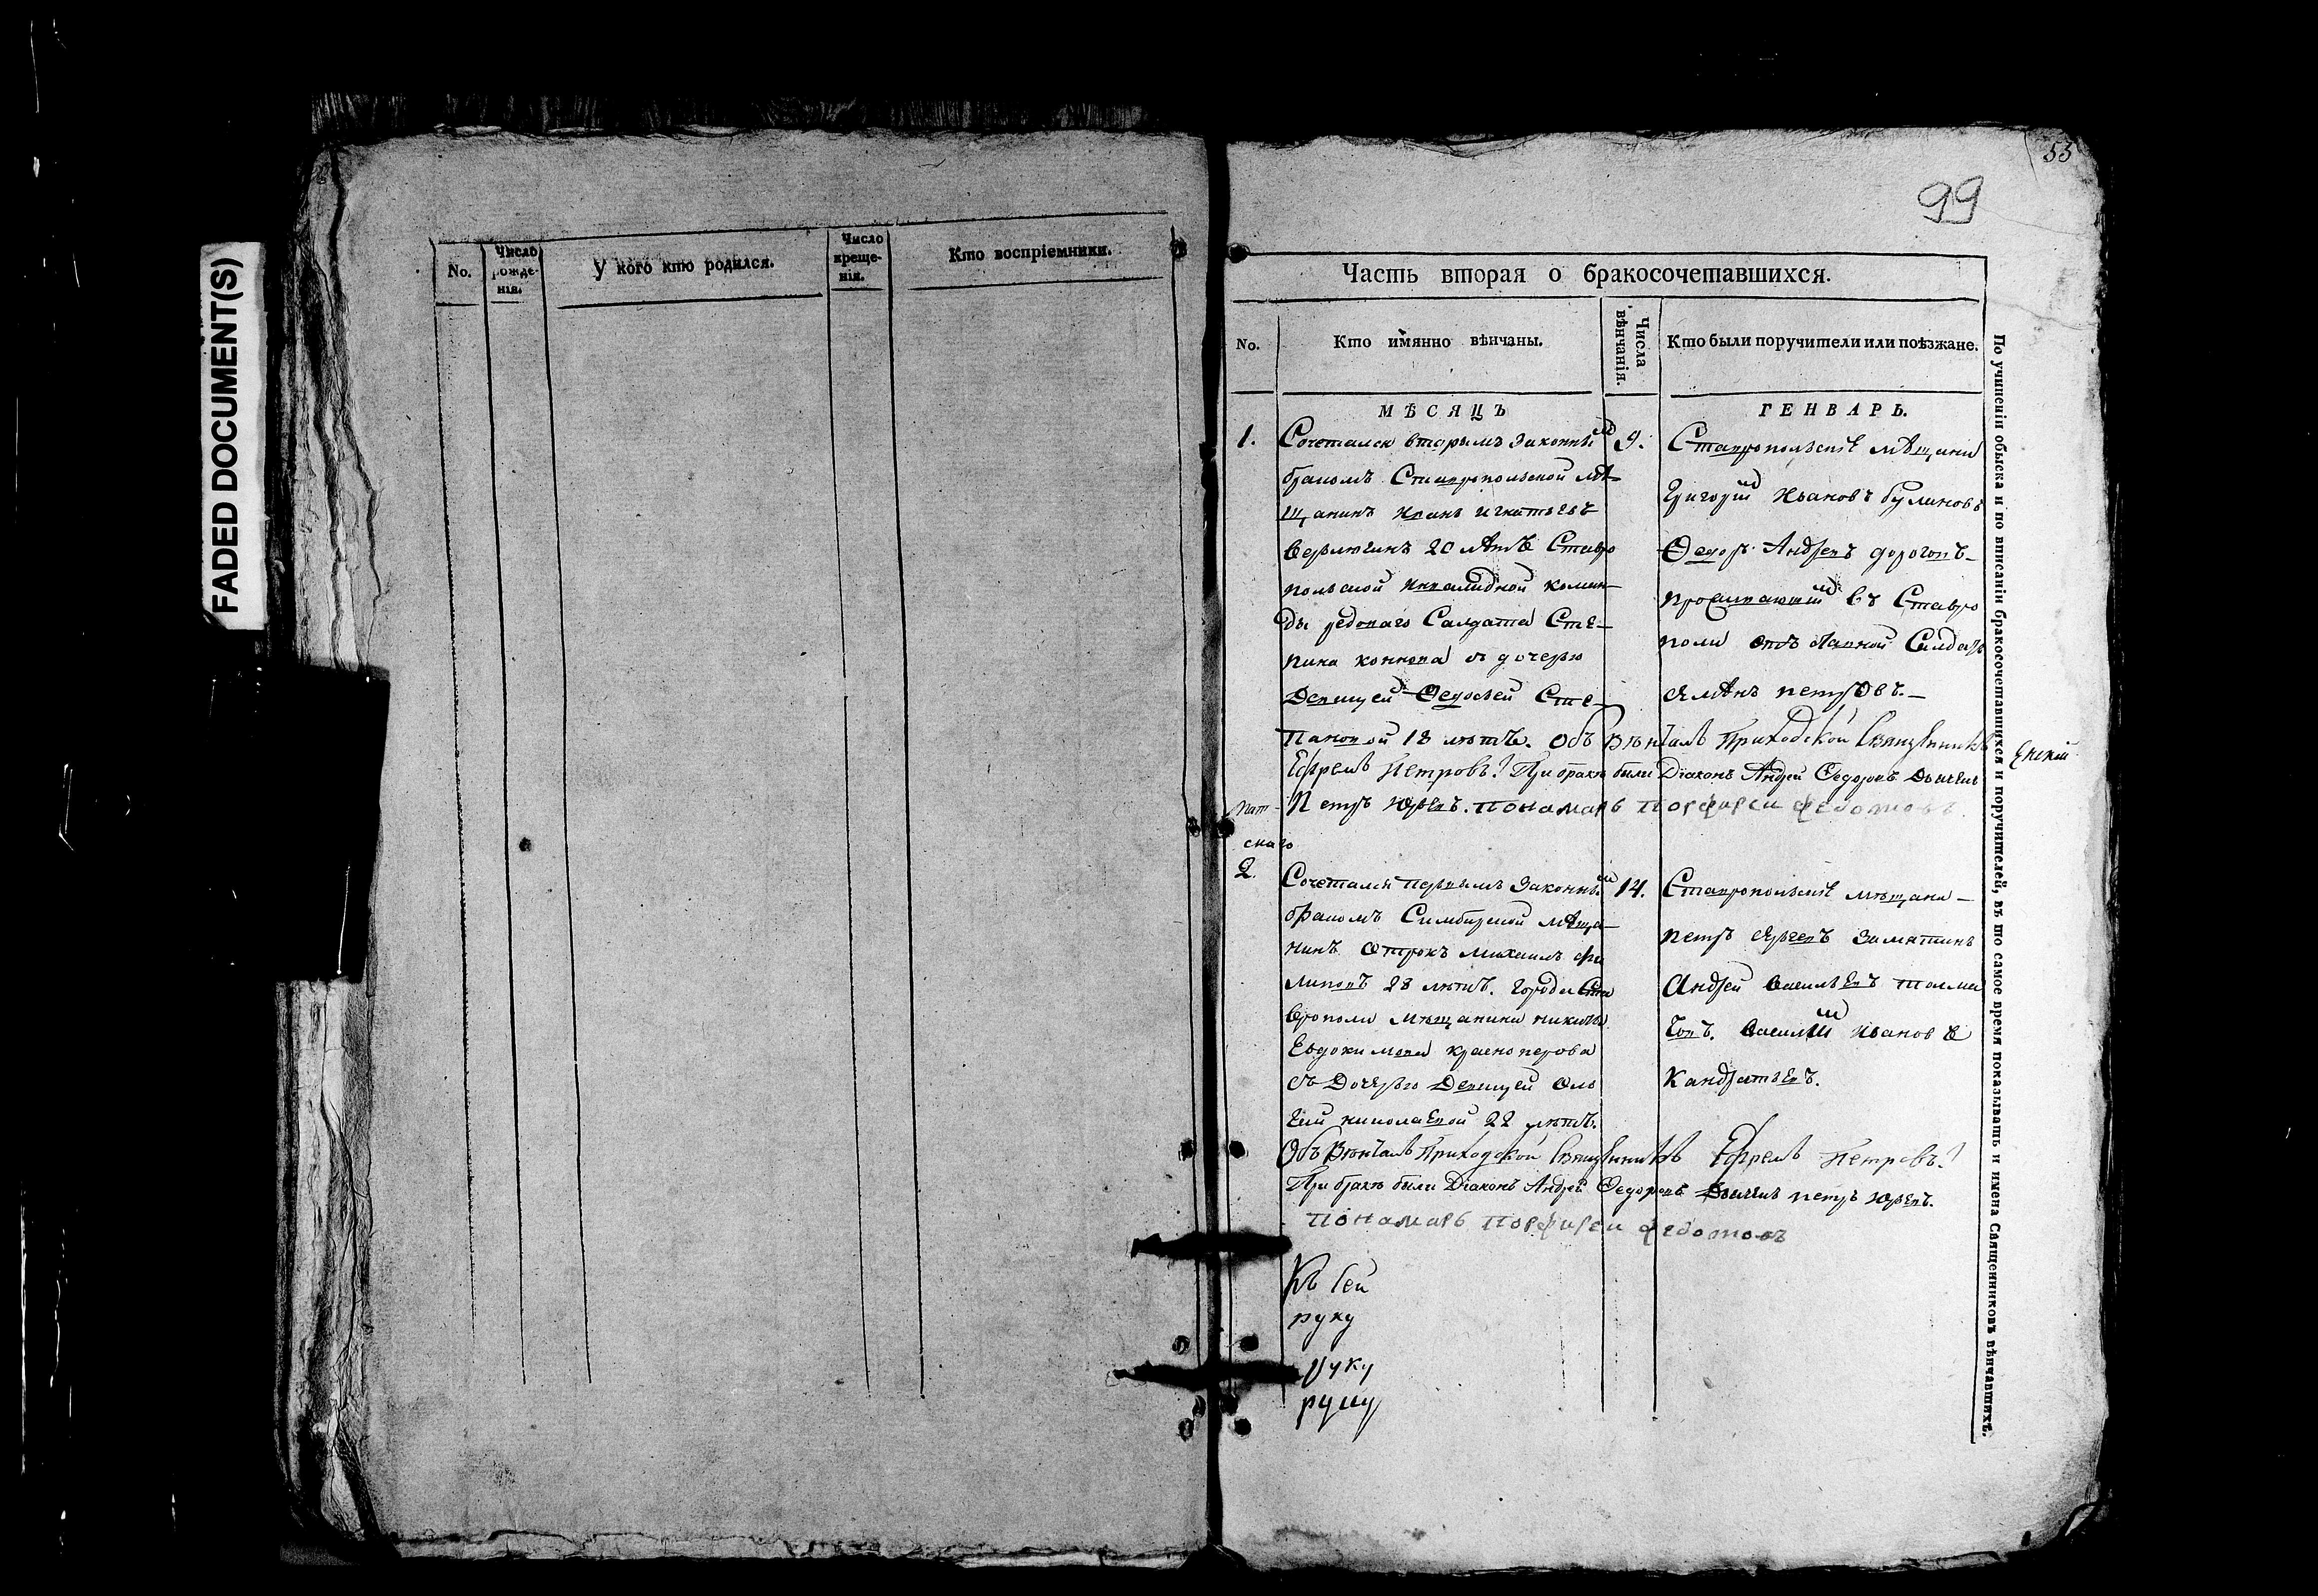 FADED DOCUMENT(S)
No.
Число рожде-нія.
У кого кто родился.
Число креще-нія.
Кто воспріемники.
53
99
Часть вторая о бракосочетавшихся.
No.
Кто имянно вѣнчаны.
Числа вѣнчанія.
Кто были поручители или поѣзжане.
МѢСЯЦЪ
ГЕНВАРЬ.
1.
Сочетался вторымъ законнымъ
бракомъ Ставропольской мѣ-
щанинъ Иванъ Игнатьевъ
20 лѣтъ Ставро
польской инвалидной коман-
ды рядоваго Салдата Сте-
пана з дочерью
Девицей Федосьей Сте-
пановой 18 лѣтъ. Обвѣнчалъ Приходской Священникъ
Ефремъ Петровъ. При бракѣ были Діаконъ Андрей Федоровъ Дьячекъ
Петръ Юрьевъ. пономарь Порфирей Федотовъ.
9.
Ставропольскіе мѣщани
Григорій Ивановъ Булиновъ
Федоръ Андреевъ
въ Ставро
поли отставной Салдатъ
Петровъ.
скаго
2.
Сочетался первымъ законнымъ
бракомъ Симбирской мѣща-
нинъ отрокъ Михаилъ Фи
липовъ 28 лѣтъ. города Ста
врополя мѣщанина Николая
Евдокимова Красноперова
съ Дочерью Девицей Оль
гой Николаевой 22 лѣтъ.
Обвѣнчалъ Приходской Священникъ Ефремъ Петровъ.
При бракѣ были Діаконъ Андрей Федоровъ Дьячекъ петръ Юрьевъ.
Пономарь Порфирей Федотовъ
14.
Ставропольскіе мѣщани-
Петръ Замятинъ
Андрей Васильевъ Толма
човъ. Василій Ивановъ
Кандратьевъ.
Къ сей
руку
руку
руку
По учиненіи обыска и по вписаніи бракосочетавшихся и поручителей, въ то самое время показывать и имена Священниковъ вѣнчавшихъ.